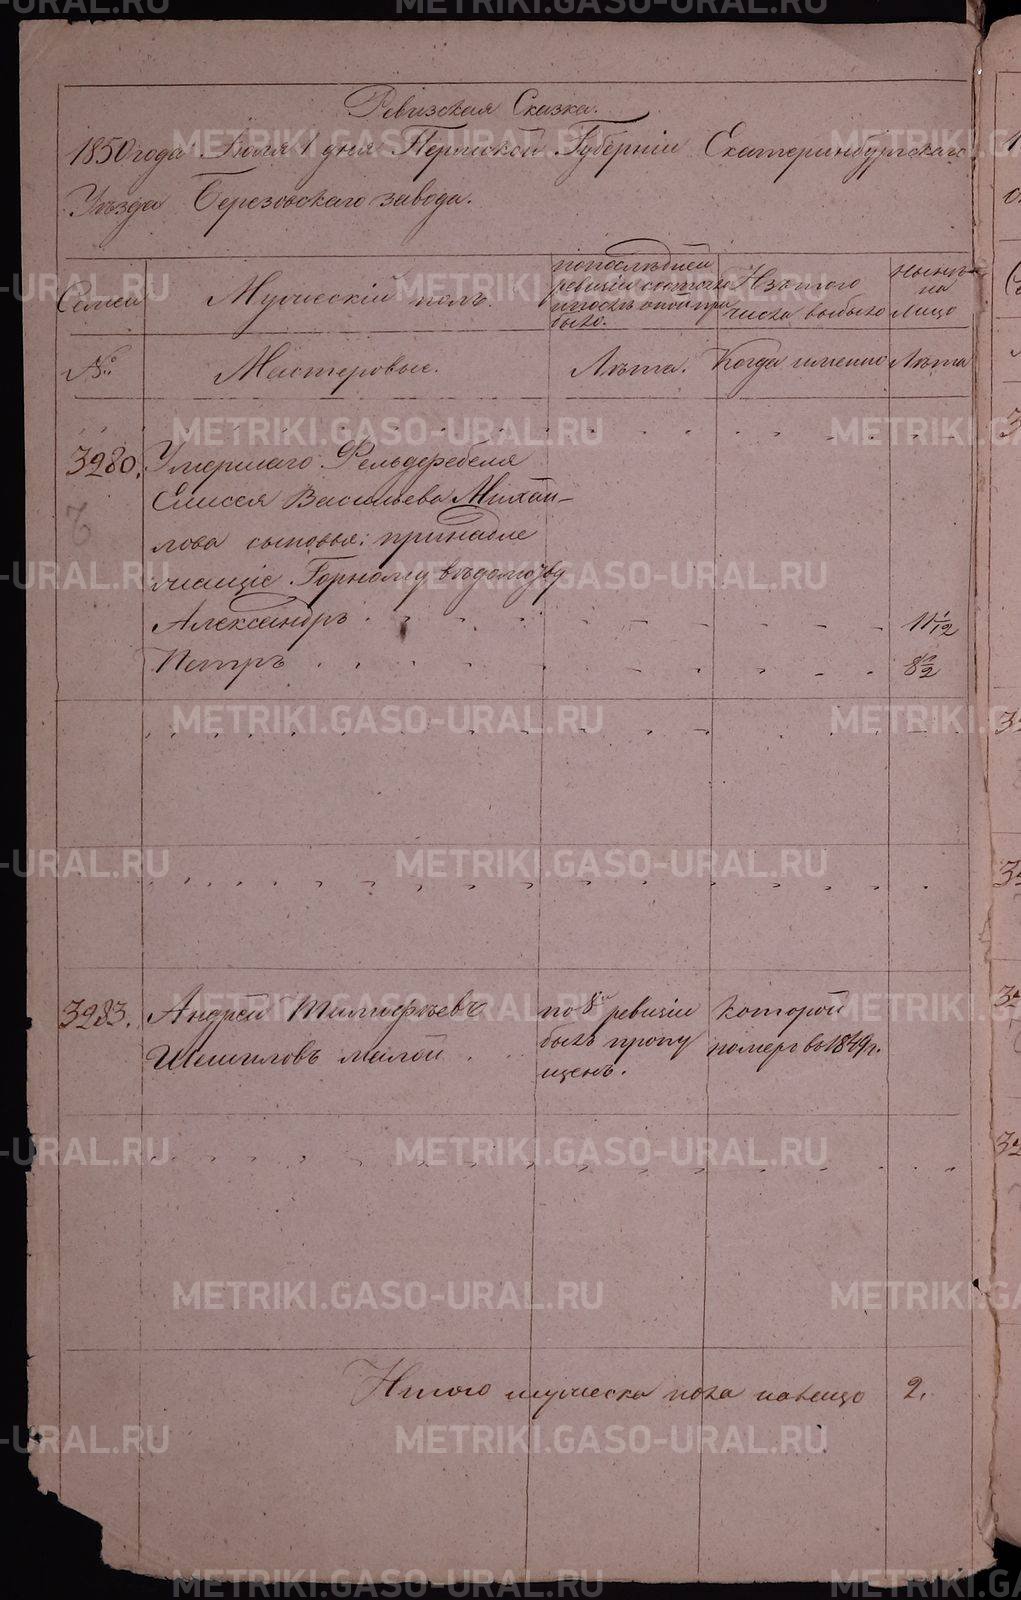 Ревизская Сказка.
1850 года Июля 1 дня Пермской Губерніи Екатеринбургскаго
Уѣзда Березовскаго завода.
Семей
Мужескій полъ.
по послѣдней
ревизіи состояло
и послѣ оной при
было.
Изъ того
числа выбыло
нынѣ
на
лицо
№
Мастеровые.
Лѣта.
Когда именно
Лѣта
3280.
Умершаго Фельдфебеля
Елисея Васильева Михай-
лова сыновья: принадле
жащіе Горному вѣдомству
Александръ 11 1/12
Петръ
3283.
Андрей Тимофѣевъ
Шешиловъ малой
по 8й ревизіи
былъ пропу
щенъ.
которой
померъ въ 1849 г.
Итого мужеска пола налицо 2.
METRIKI.GASO-URAL.RU